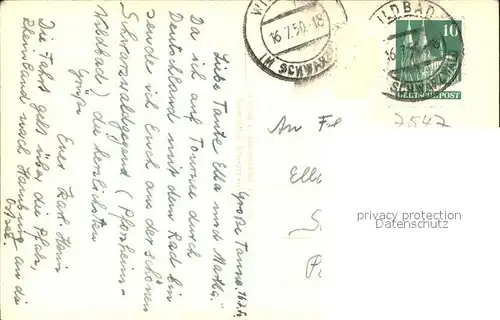 Große Tanne, 16.7.50
Liebe Tante Ella und Martha!
Da ich auf Tournee durch
Deutschland mit dem Rad bin
sende ich Euch aus der schönen
Schwarzwaldgegend (Pforzheim-
Wildbad) die herzlichsten
Grüße
Euer Karl Heinz
Die Fahrt geht über die Pfalz,
Rheinland nach Hamburg an die
Ostsee.
16.7.50.-18
(SCHWARZWALD)
WILDBAD
16.7.50.-18
(SCHWARZWALD)
10
DEUTSCHE POST
7547
An Frl
Ell
S
P
privacy protection
www.oldthing.de